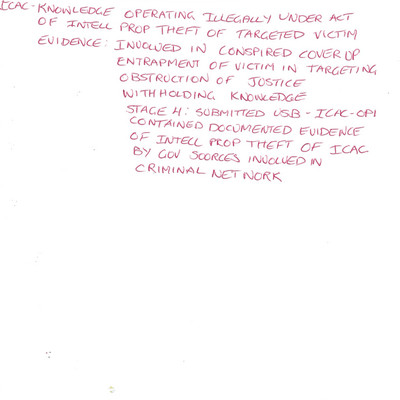 ICAC-KNOWLEDGE OPERATING ILLEGALLY UNDER ACT
OF INTELL PROP THEFT OF TARGETED VICTIM
EVIDENCE: INVOLVED IN CONSPIRED COVER UP
ENTRAPMENT OF VICTIM IN TARGETING
OBSTRUCTION OF JUSTICE
WITHHOLDING KNOWLEDGE
STAGE 4: SUBMITTED USB-ICAC-OPI
CONTAINED DOCUMENTED EVIDENCE
OF INTELL PROP THEFT OF ICAC
BY GOV SCORCES INVOLVED IN
CRIMINAL NETWORK